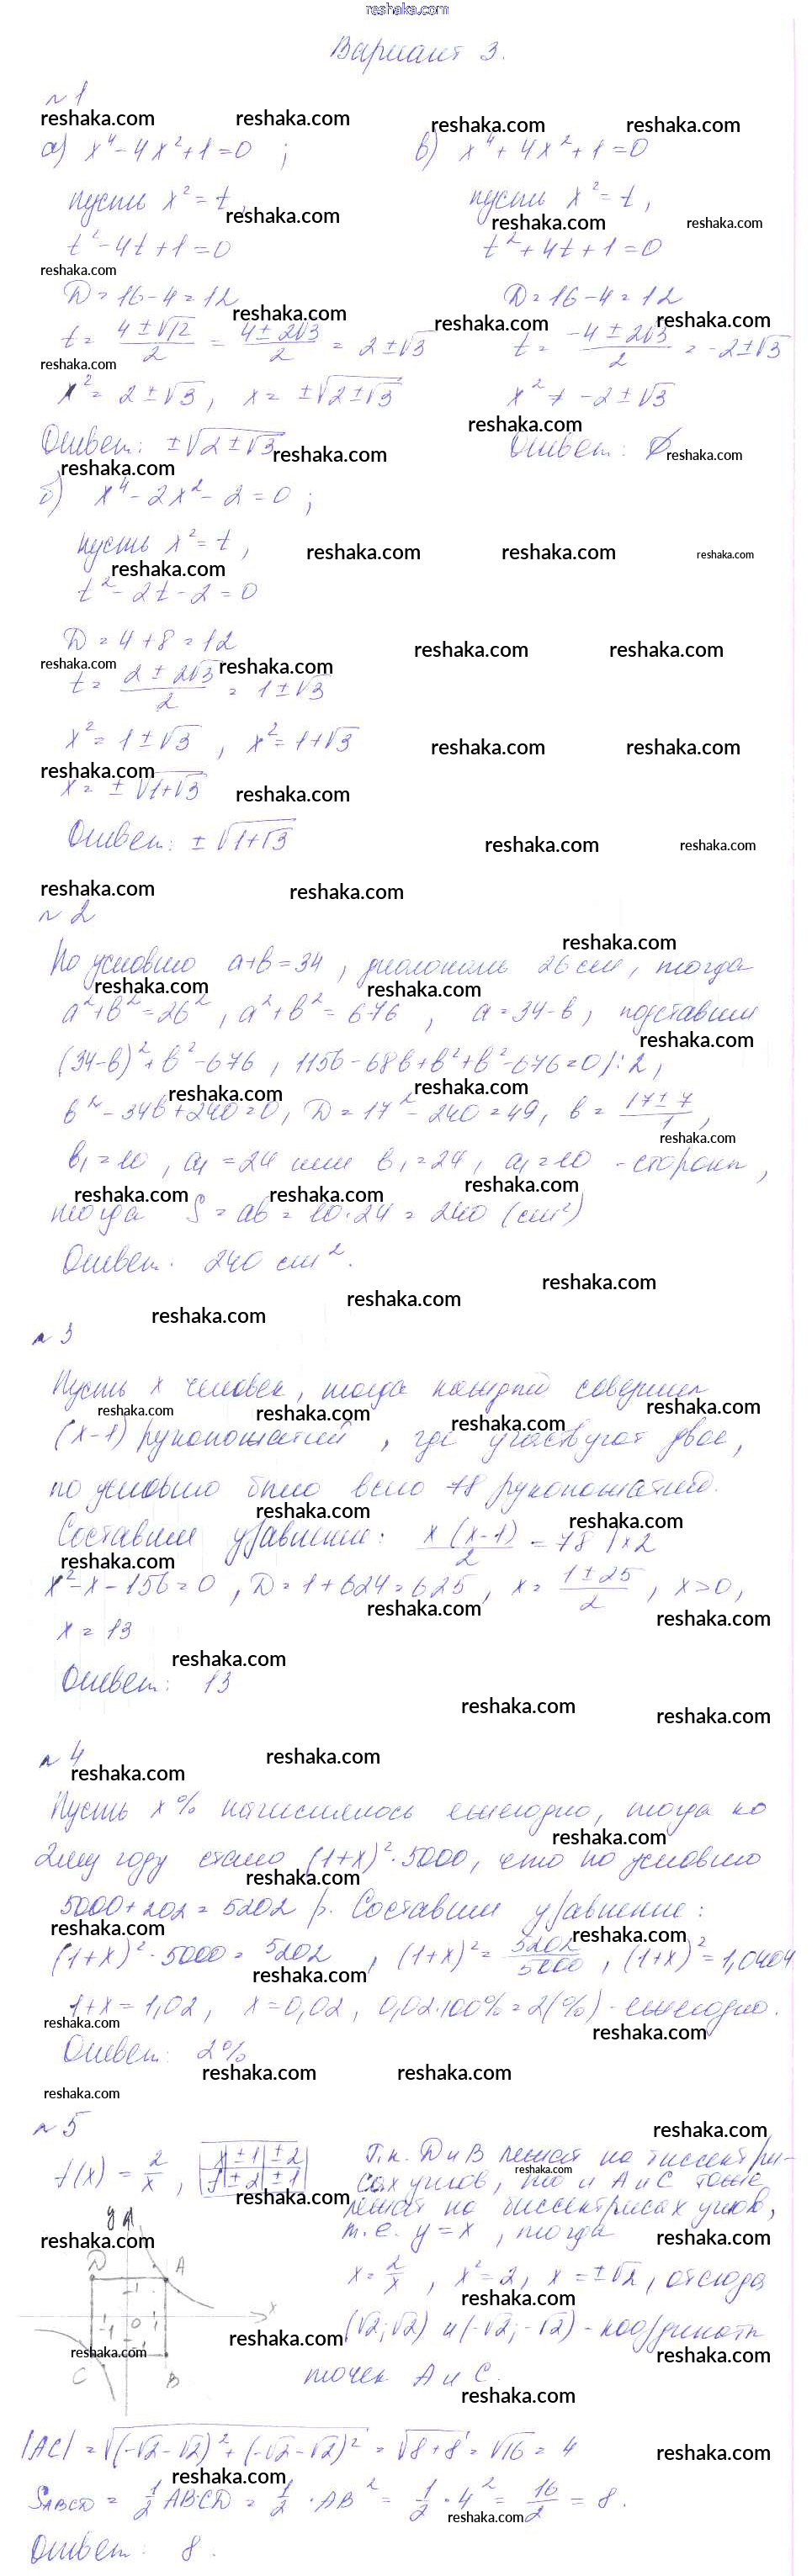 reshaka.com
Вариант 3.
№1
а) x⁴-4x²+1=0 ;
пусть x²=t,
t²-4t+1=0
D=16-4=12
t= (4±√12)/2 = (4±2√3)/2 = 2±√3
x²=2±√3, x=±√(2±√3)
Ответ: ±√(2±√3)
в) x⁴+4x²+1=0
пусть x²=t,
t²+4t+1=0
D=16-4=12
t= (-4±2√3)/2 = -2±√3
x²≠-2±√3
Ответ: ∅
б) x⁴-2x²-2=0 ;
пусть x²=t,
t²-2t-2=0
D=4+8=12
t= (2±2√3)/2 = 1±√3
x²=1±√3, x²=1+√3
x=±√(1+√3)
Ответ: ±√(1+√3)
№2
По условию a+b=34, диагональ 26 см, тогда
a²+b²=26², a²+b²=676, a=34-b, подставим
(34-b)²+b²-676, 1156-68b+b²+b²-676=0/:2,
b²-34b+240=0, D=17²-240=49, b= (17±7)/1,
b₁=10, a₁=24 или b₁=24, a₁=10 -стороны,
тогда S=ab=10·24=240 (см²)
Ответ: 240 см².
№3
Пусть x человек, тогда каждый совершил
(x-1) рукопожатий, где участвуют двое,
по условию было всего 78 рукопожатий.
Составим уравнение: x(x-1)/2 = 78 /×2
x²-x-156=0, D=1+624=625, x= (1±25)/2, x>0,
x=13
Ответ: 13
№4
Пусть x% начислялось ежегодно, тогда ко
2му году стало (1+x)²·5000, что по условию
5000+202=5202 р. Составим уравнение:
(1+x)²·5000=5202, (1+x)²= 5202/5000, (1+x)²=1,0404
1+x=1,02, x=0,02, 0,02·100%=2(%)-ежегодно.
Ответ: 2%
№5
f(x)= 2/x, x ±1 ±2
y ±2 ±1
Т.к. D и B лежат на биссектри-
сах углов, то и A и C тоже
лежат на биссектрисах углов,
т.е. y=x, тогда
x= 2/x, x²=2, x=±√2, отсюда
(√2;√2) и (-√2;-√2)-координаты
точек A и C.
y
D A
x
-1 0 1
C B
|AC|=√((-√2-√2)²+(-√2-√2)²)=√(8+8)=√16=4
S_ABCD= 1/2 ABCD= 1/2 ·AB²= 1/2 ·4²= 16/2 =8.
Ответ: 8.